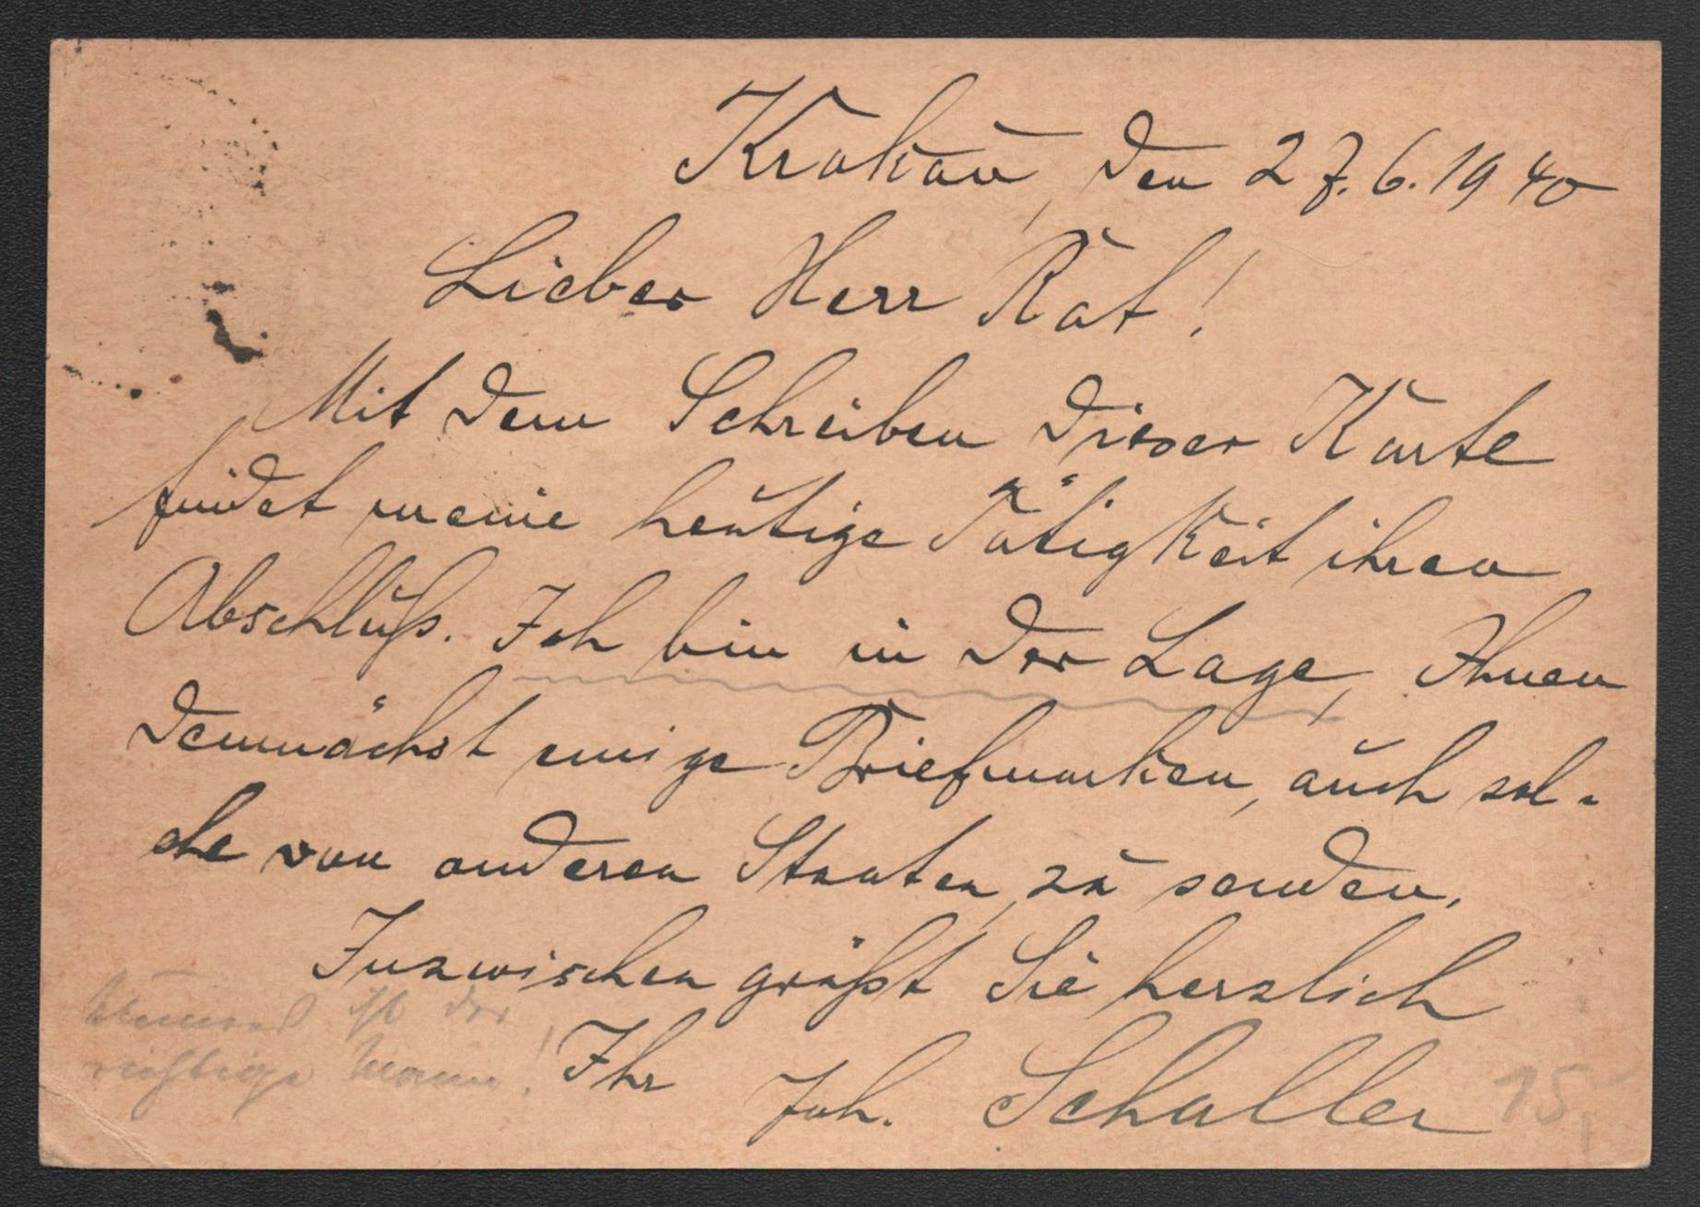 Krakau, den 27.6.1940
Lieber Herr Rat!
Mit dem Schreiben dieser Karte
findet meine heutige Tätigkeit ihren
Abschluß. Ich bin in der Lage, Ihnen
demnächst einige Briefmarken, auch sol-
che von anderen Staaten, zu senden.
Inzwischen grüßt Sie herzlich
ist der
richtige Mann!
Ihr Joh. Schaller
15,-